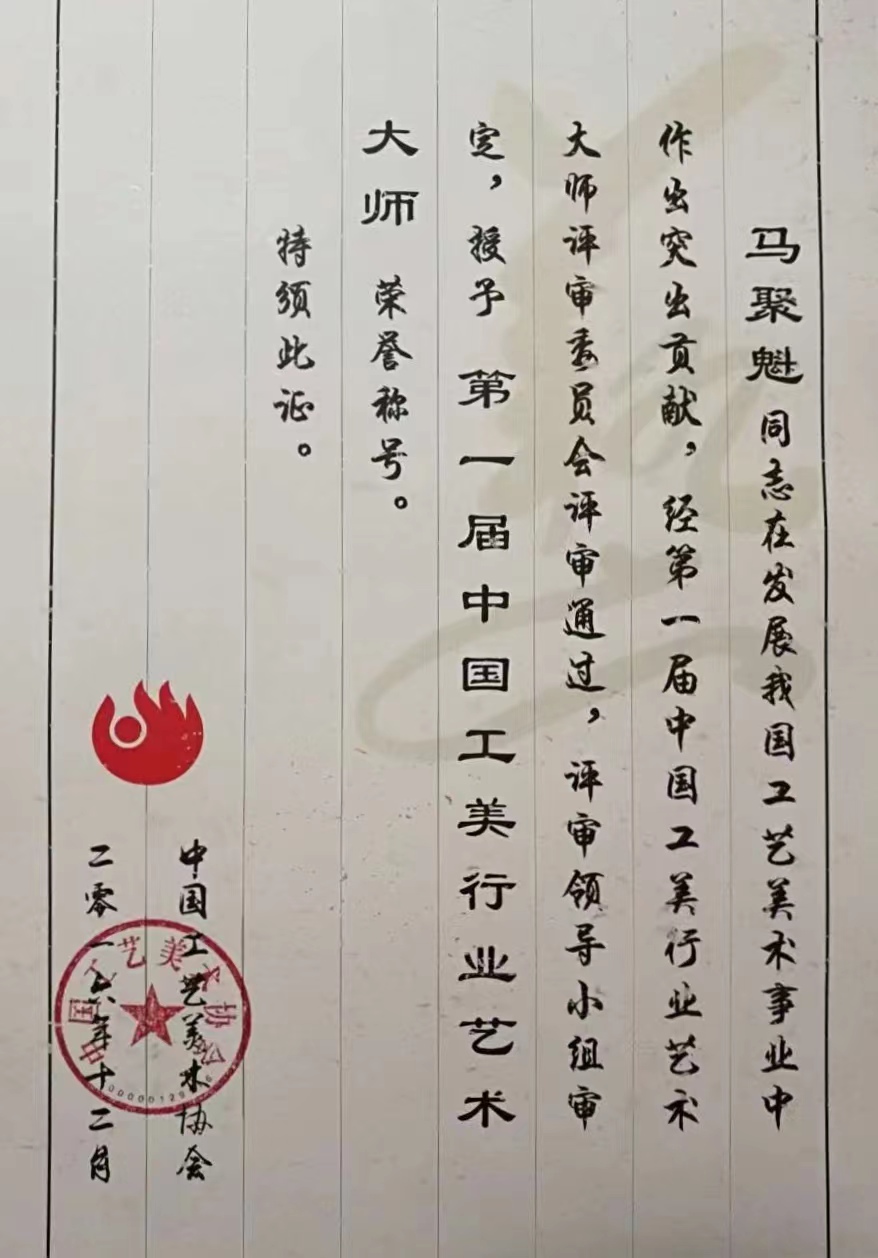 马聚魁同志在发展我国工艺美术事业中
作出突出贡献，经第一届中国工美行业艺术
大师评审委员会评审通过，评审领导小组审
定，授予 第一届中国工美行业艺术
大师 荣誉称号。
特颁此证。
中国工艺美术协会
二零一六年十二月
中国工艺美术协会